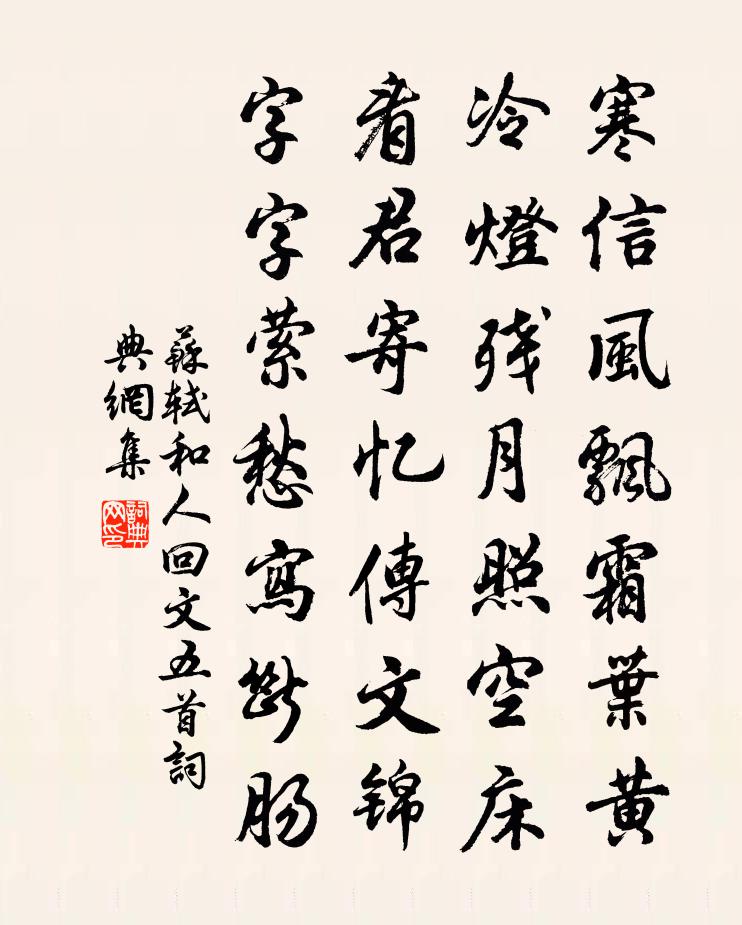 寒信風飄霜葉黃
冷燈残月照空床
看君寄忆傳文錦
字字縈愁寫斷腸
蘇軾和人回文五首詞
典網集
詞典网印